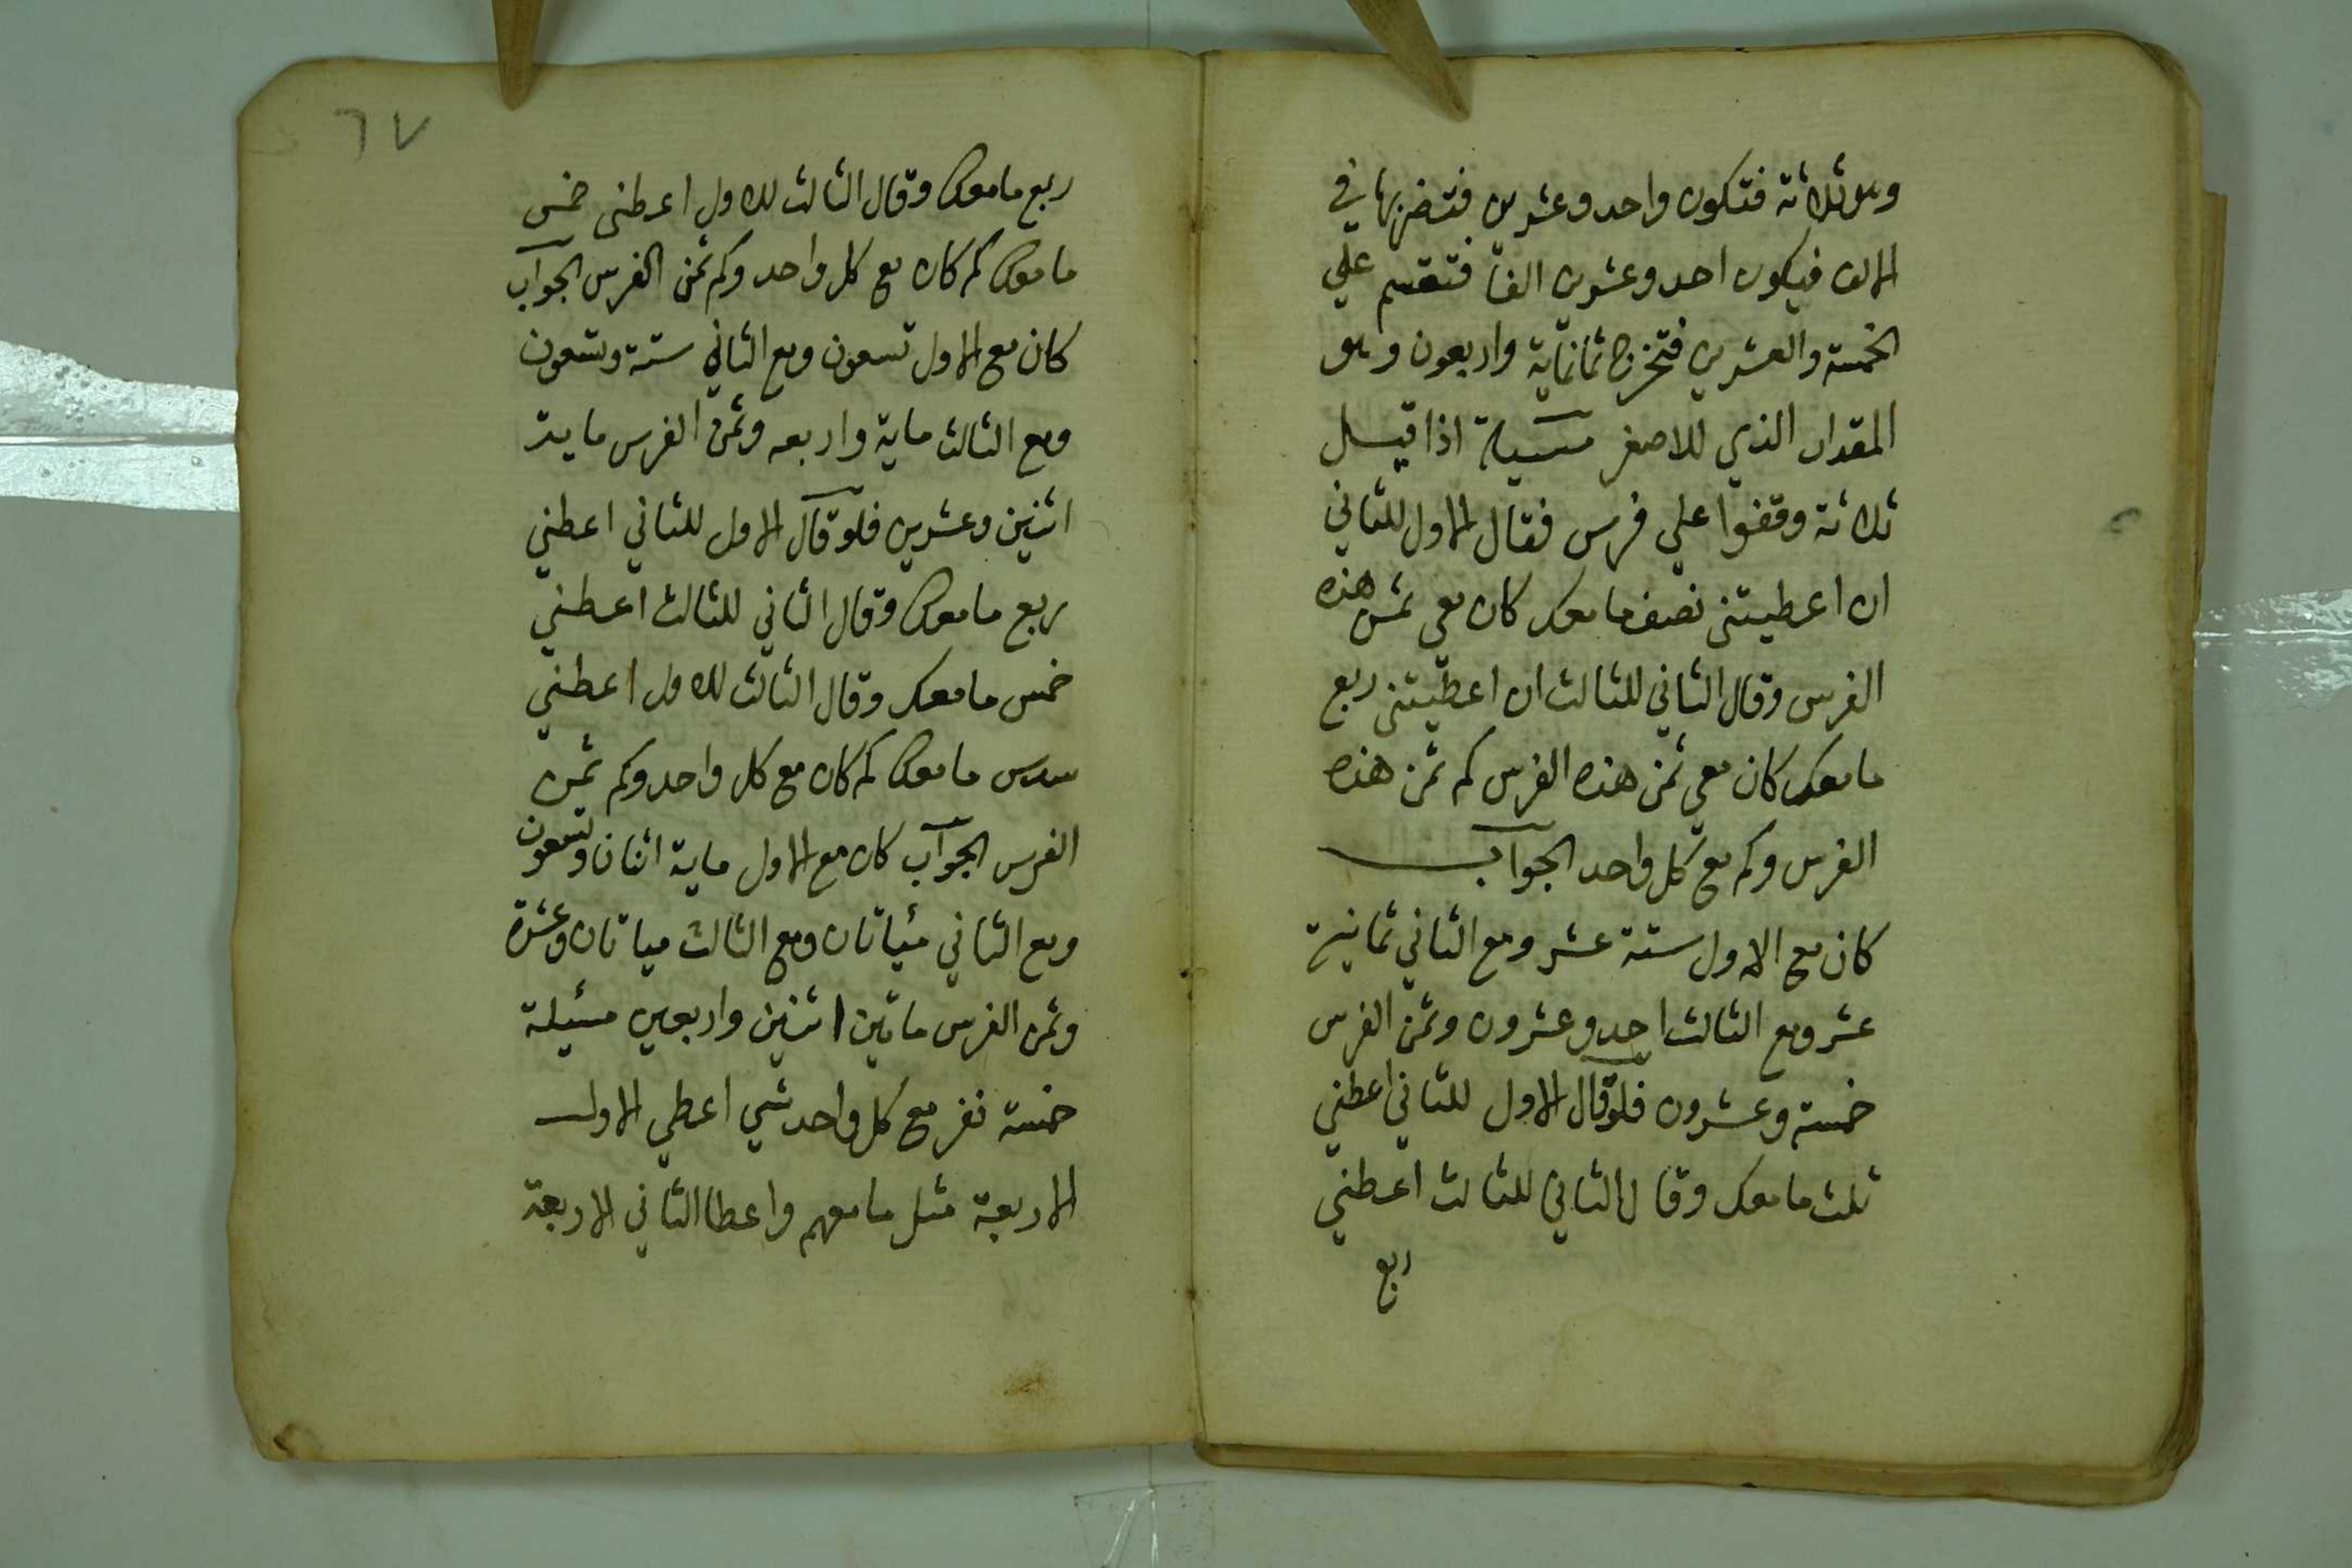 وهو ثلاثة فتكون واحد وعشرين فتضربها في
الالف فيكون احد وعشرين الفا فتقسم علي
الخمسة والعشرين فتخرج ثمانماية واربعون وهو
المقدار الذي للاصغر مسيلة اذا قيل
ثلاثة وقفوا علي فرس فقال الاول للثاني
ان اعطيتني نصف ما معك كان معي ثمن هذه
الفرس وقال الثاني للثالث ان اعطيتني ربع
ما معك كان معي ثمن هذه الفرس كم ثمن هذه
الفرس وكم مع كل واحد الجواب
كان مع الاول ستة عشر ومع الثاني ثمانية
عشر ومع الثالث احد وعشرون وثمن الفرس
خمسة وعشرون فلو قال الاول للثاني اعطني
ثلث ما معك وقال الثاني للثالث اعطني
ربع
٦٧
ربع ما معك وقال الثالث للاول اعطني خمس
ما معك كم كان مع كل واحد وكم ثمن الفرس الجواب
كان مع الاول تسعون ومع الثاني ستة وتسعون
ومع الثالث ماية واربعه وثمن الفرس ماية
اثنين وعشرين فلو قال الاول للثاني اعطني
ربع ما معك وقال الثاني للثالث اعطني
خمس ما معك وقال الثالث للاول اعطني
سدس ما معك كم كان مع كل واحد وكم ثمن
الفرس الجواب كان مع الاول ماية اثنان وتسعون
ومع الثاني مئياتان ومع الثالث مياتان وعشرة
وثمن الفرس ماتين اثنين واربعين مسئيلة
خمسة نفر مع كل واحد شي اعطي الاول
الاربعة مثل ما معهم واعطا الثاني الاربعة